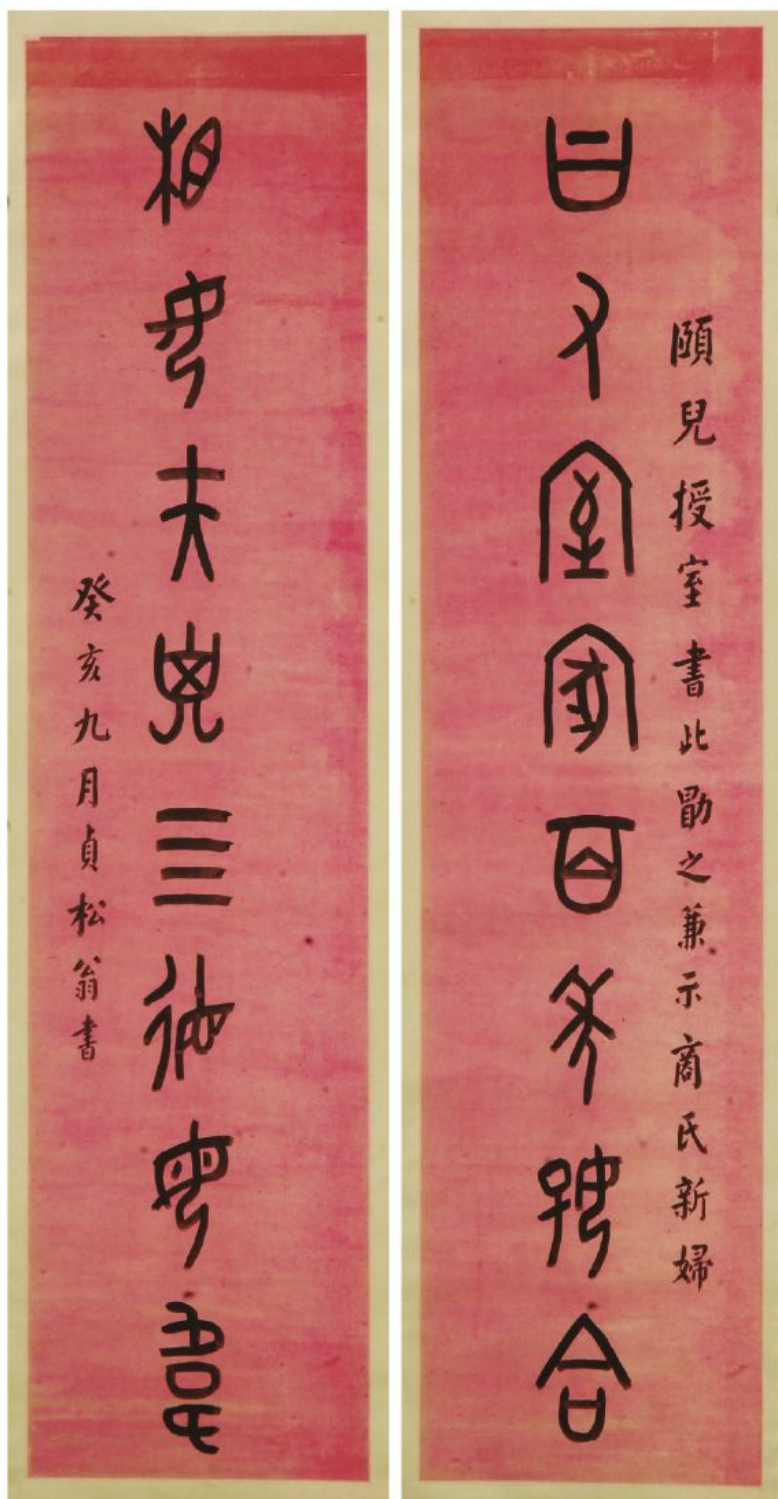 頤兒授室書此勖之兼示商氏新婦
曰又室家百年好合
相女夫子四德毋韋
癸亥九月貞松翁書